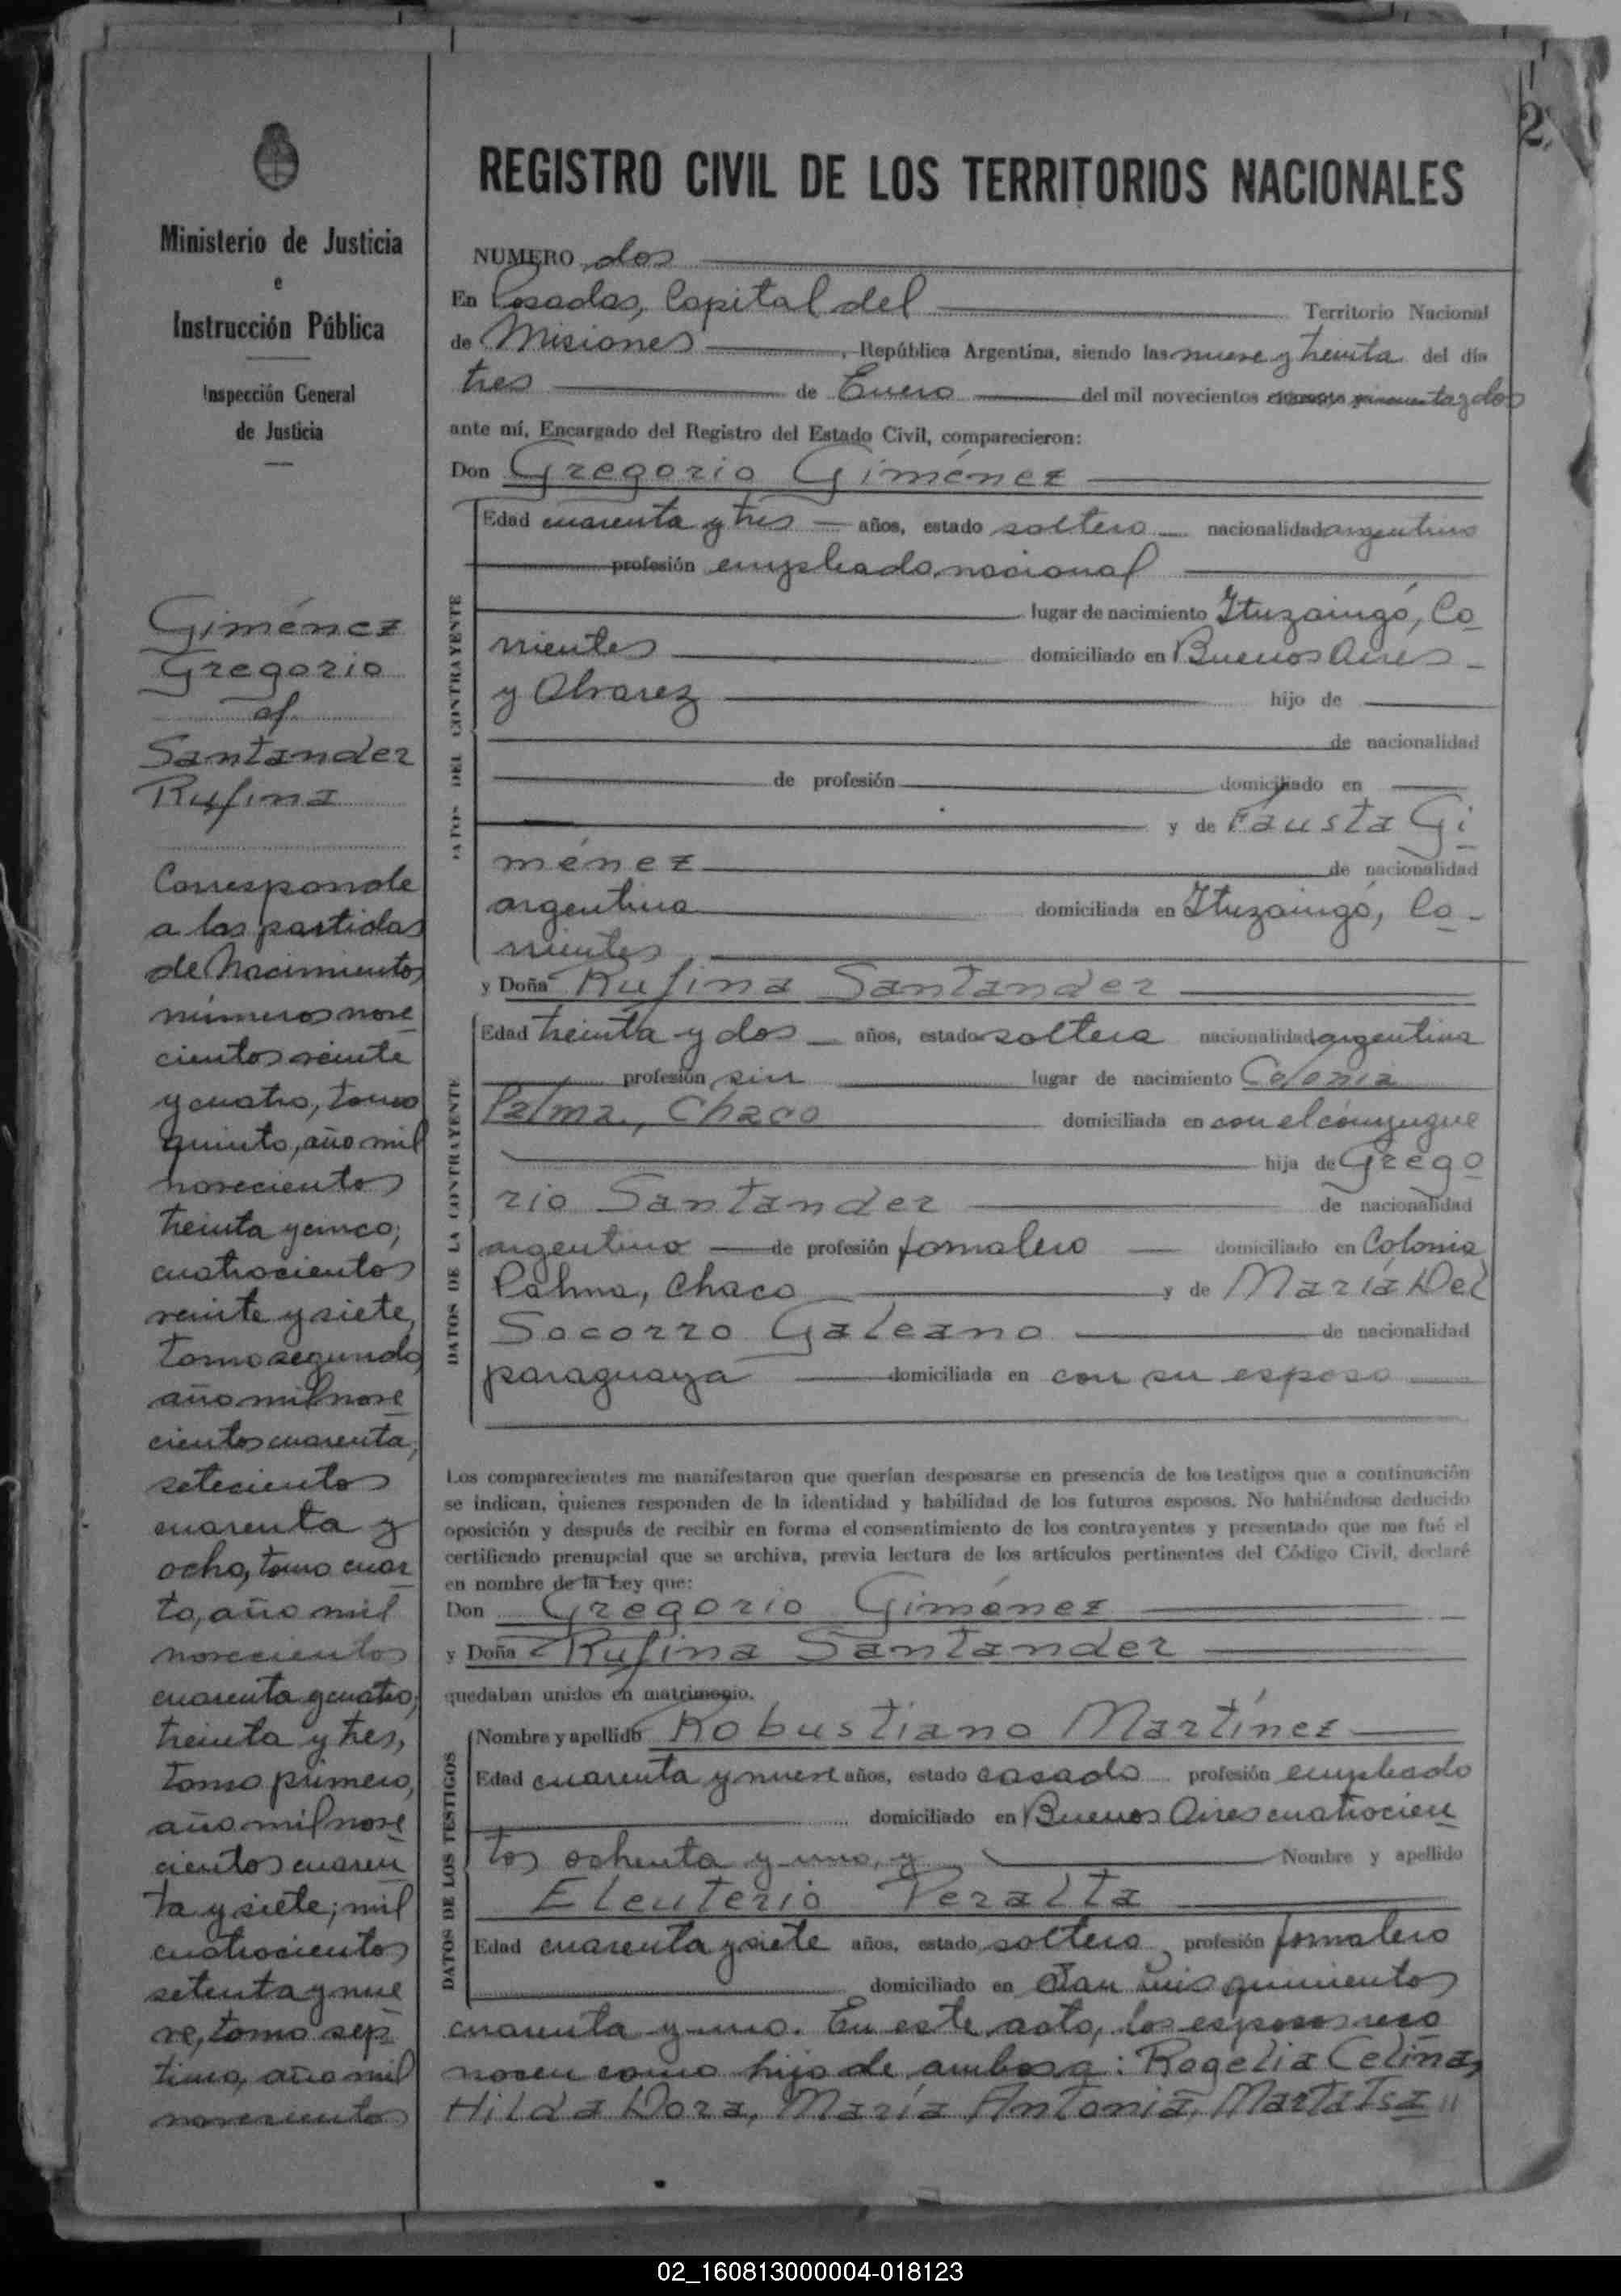 2
Ministerio de Justicia
e
Instrucción Pública
Inspección General
de Justicia
Giménez
Gregorio
c/.
Santander
Rufina
Corresponde
a las partidas
de Nacimientos
números nove
cientos veinte
y cuatro, tomo
quinto, año mil
novecientos
treinta y cinco;
cuatrocientos
veinte y siete,
tomo segundo,
año mil nove
cientos cuarenta,
setecientos
cuarenta y
ocho, tomo cuar
to, año mil
novecientos
cuarenta y cuatro;
treinta y tres,
tomo primero,
año mil nove
cientos cuaren
ta y siete; mil
cuatrocientos
setenta y nue
ve, tomo sép
timo, año mil
novecientos
REGISTRO CIVIL DE LOS TERRITORIOS NACIONALES
NUMERO dos
En Posadas, Capital del Territorio Nacional
de Misiones, República Argentina, siendo las nueve y treinta del día
tres de Enero del mil novecientos cincuenta y dos
ante mí, Encargado del Registro del Estado Civil, comparecieron:
Don Gregorio Giménez
DATOS DEL CONTRAYENTE
Edad cuarenta y tres años, estado soltero nacionalidad argentino
profesión empleado nacional
lugar de nacimiento Ituzaingó, Co
rrientes domiciliado en Buenos Aires
y Alvarez hijo de
de nacionalidad
de profesión domiciliado en
y de Fausta Gi
ménez de nacionalidad
argentina domiciliada en Ituzaingó, Co
rrientes
y Doña Rufina Santander
DATOS DE LA CONTRAYENTE
Edad treinta y dos años, estado soltera nacionalidad argentina
profesión sin lugar de nacimiento Colonia
Palma, Chaco domiciliada en con el cónyugue
hija de Grego
rio Santander de nacionalidad
argentino de profesión jornalero domiciliado en Colonia
Palma, Chaco y de María Del
Socorro Galeano de nacionalidad
paraguaya domiciliada en con su esposo
Los comparecientes me manifestaron que querían desposarse en presencia de los testigos que a continuación
se indican, quienes responden de la identidad y habilidad de los futuros esposos. No habiéndose deducido
oposición y después de recibir en forma el consentimiento de los contrayentes y presentado que me fué el
certificado prenupcial que se archiva, previa lectura de los artículos pertinentes del Código Civil, declaré
en nombre de la Ley que:
Don Gregorio Giménez
y Doña Rufina Santander
quedaban unidos en matrimonio.
DATOS DE LOS TESTIGOS
Nombre y apellido Robustiano Martínez
Edad cuarenta y nueve años, estado casado profesión empleado
domiciliado en Buenos Aires cuatrocien
tos ochenta y uno, y Nombre y apellido
Eleuterio Peralta
Edad cuarenta y siete años, estado soltero, profesión jornalero
domiciliado en San Luis quinientos
cuarenta y uno. En este acto, los esposos reco
nocen como hijo de ambos a: Rogelia Celina,
Hilda Dora, María Antonia, Marta Isa "
02_160813000004-018123